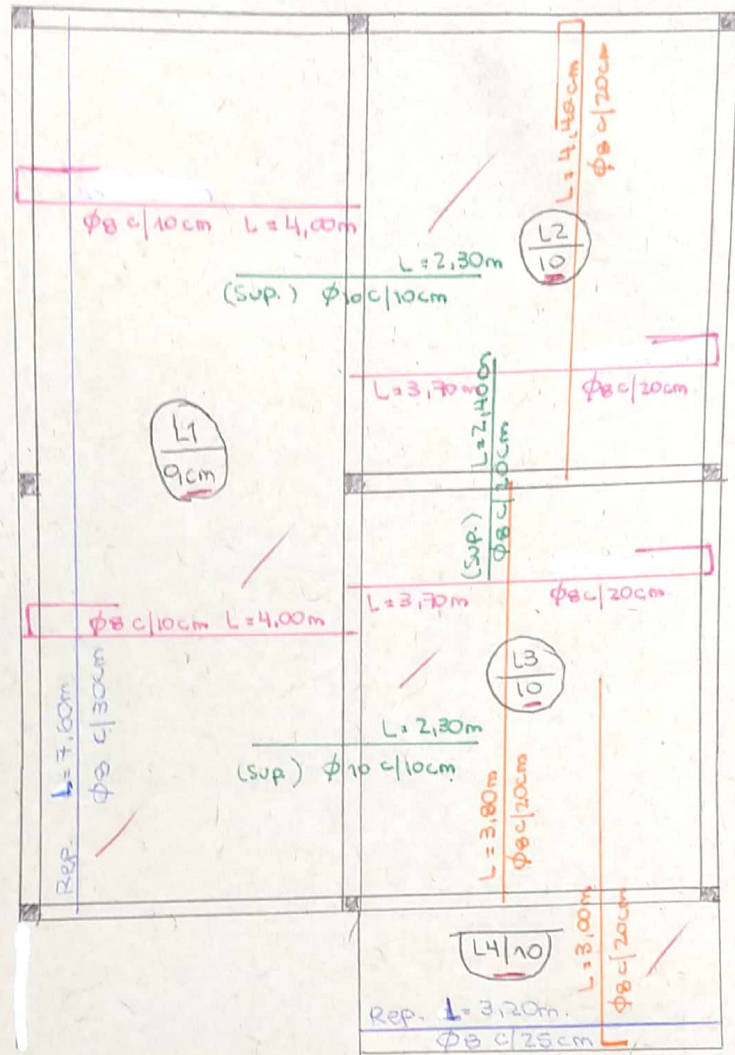 L=4,40cm
Φ8 c/20cm
Φ8 c/10cm L=4,00m
L2
10
L=2,30m
(Sup.) Φ10 c/10cm
L=3,70m
Φ8 c/20cm
L1
9cm
L=2,40m
(Sup.) Φ8 c/20cm
L=3,70m
Φ8 c/20cm
Φ8 c/10cm L=4,00m
L3
10
L=2,30m
(Sup) Φ10 c/10cm
Rep. L=7,60m
Φ8 c/30cm
L=3,80m
Φ8 c/20cm
L4/10
L=3,00m
Φ8 c/20cm
Rep. L=3,20m.
Φ8 c/25cm